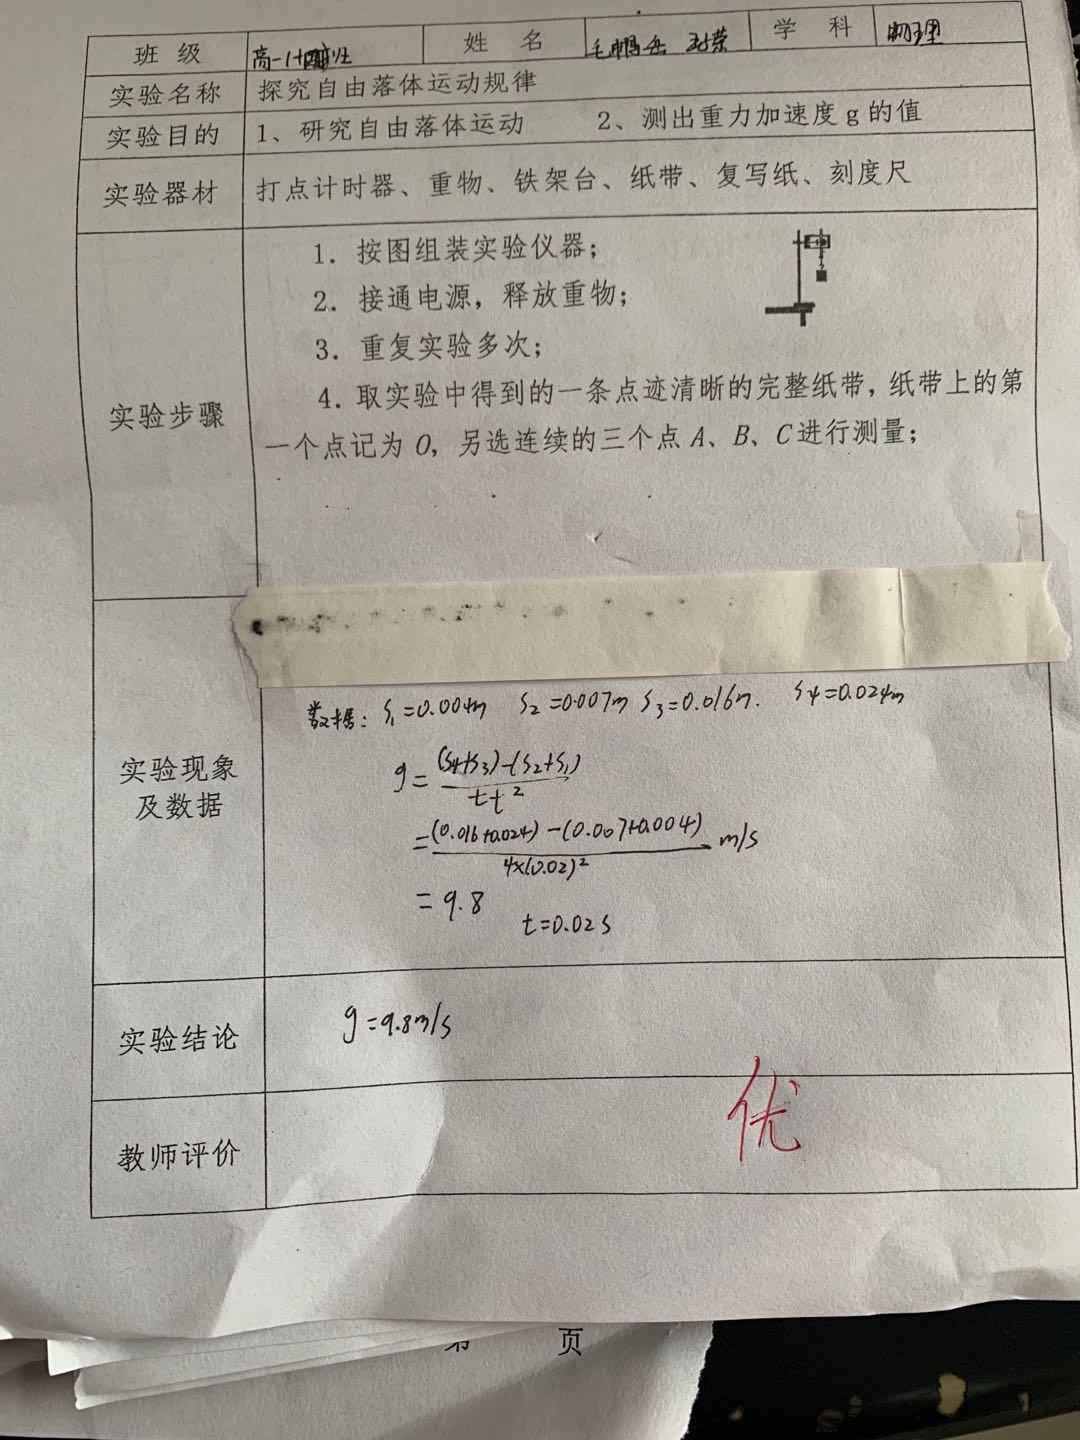 班级 高一 姓名 学科 物理
实验名称 探究自由落体运动规律
实验目的 1、研究自由落体运动 2、测出重力加速度g的值
实验器材 打点计时器、重物、铁架台、纸带、复写纸、刻度尺
1．按图组装实验仪器；
2．接通电源，释放重物；
3．重复实验多次；
实验步骤
4．取实验中得到的一条点迹清晰的完整纸带，纸带上的第
一个点记为O，另选连续的三个点A、B、C进行测量；
实验现象
及数据
数据：S₁=0.004m S₂=0.007m S₃=0.016m. S4=0.024m
g=((S4+S3)-(S2+S1))/tt²
=((0.016+0.024)-(0.007+0.004))/(4×(0.02)²) m/s
=9.8
t=0.02s
实验结论 g=9.8m/s
教师评价 优
第 页